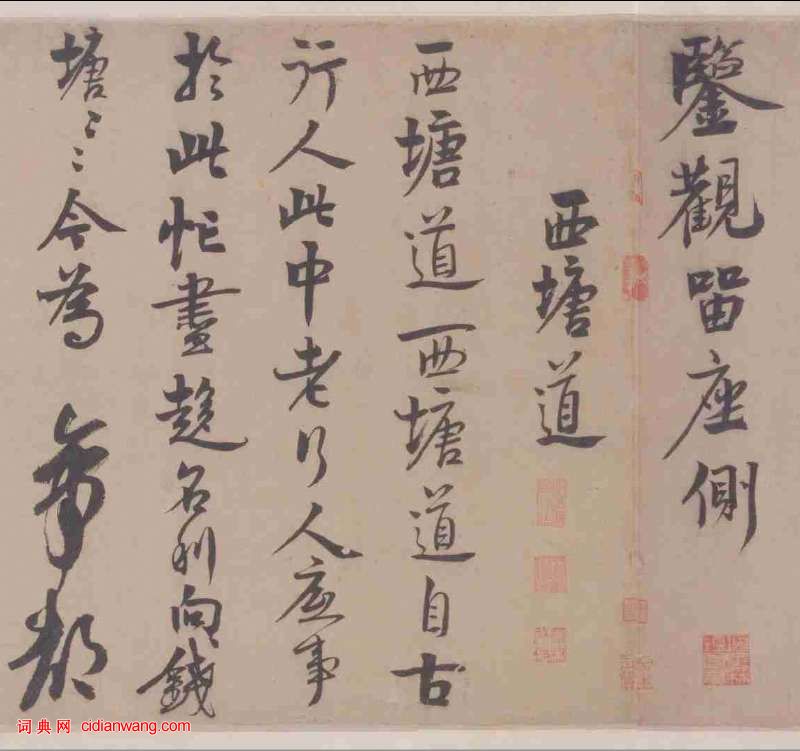 鑒觀留座側
西塘道
西塘道西塘道自古
行人此中老行人底事
於此忙盡趍名利向錢
塘〻〻今為帝都
词典网 cidianwang.com